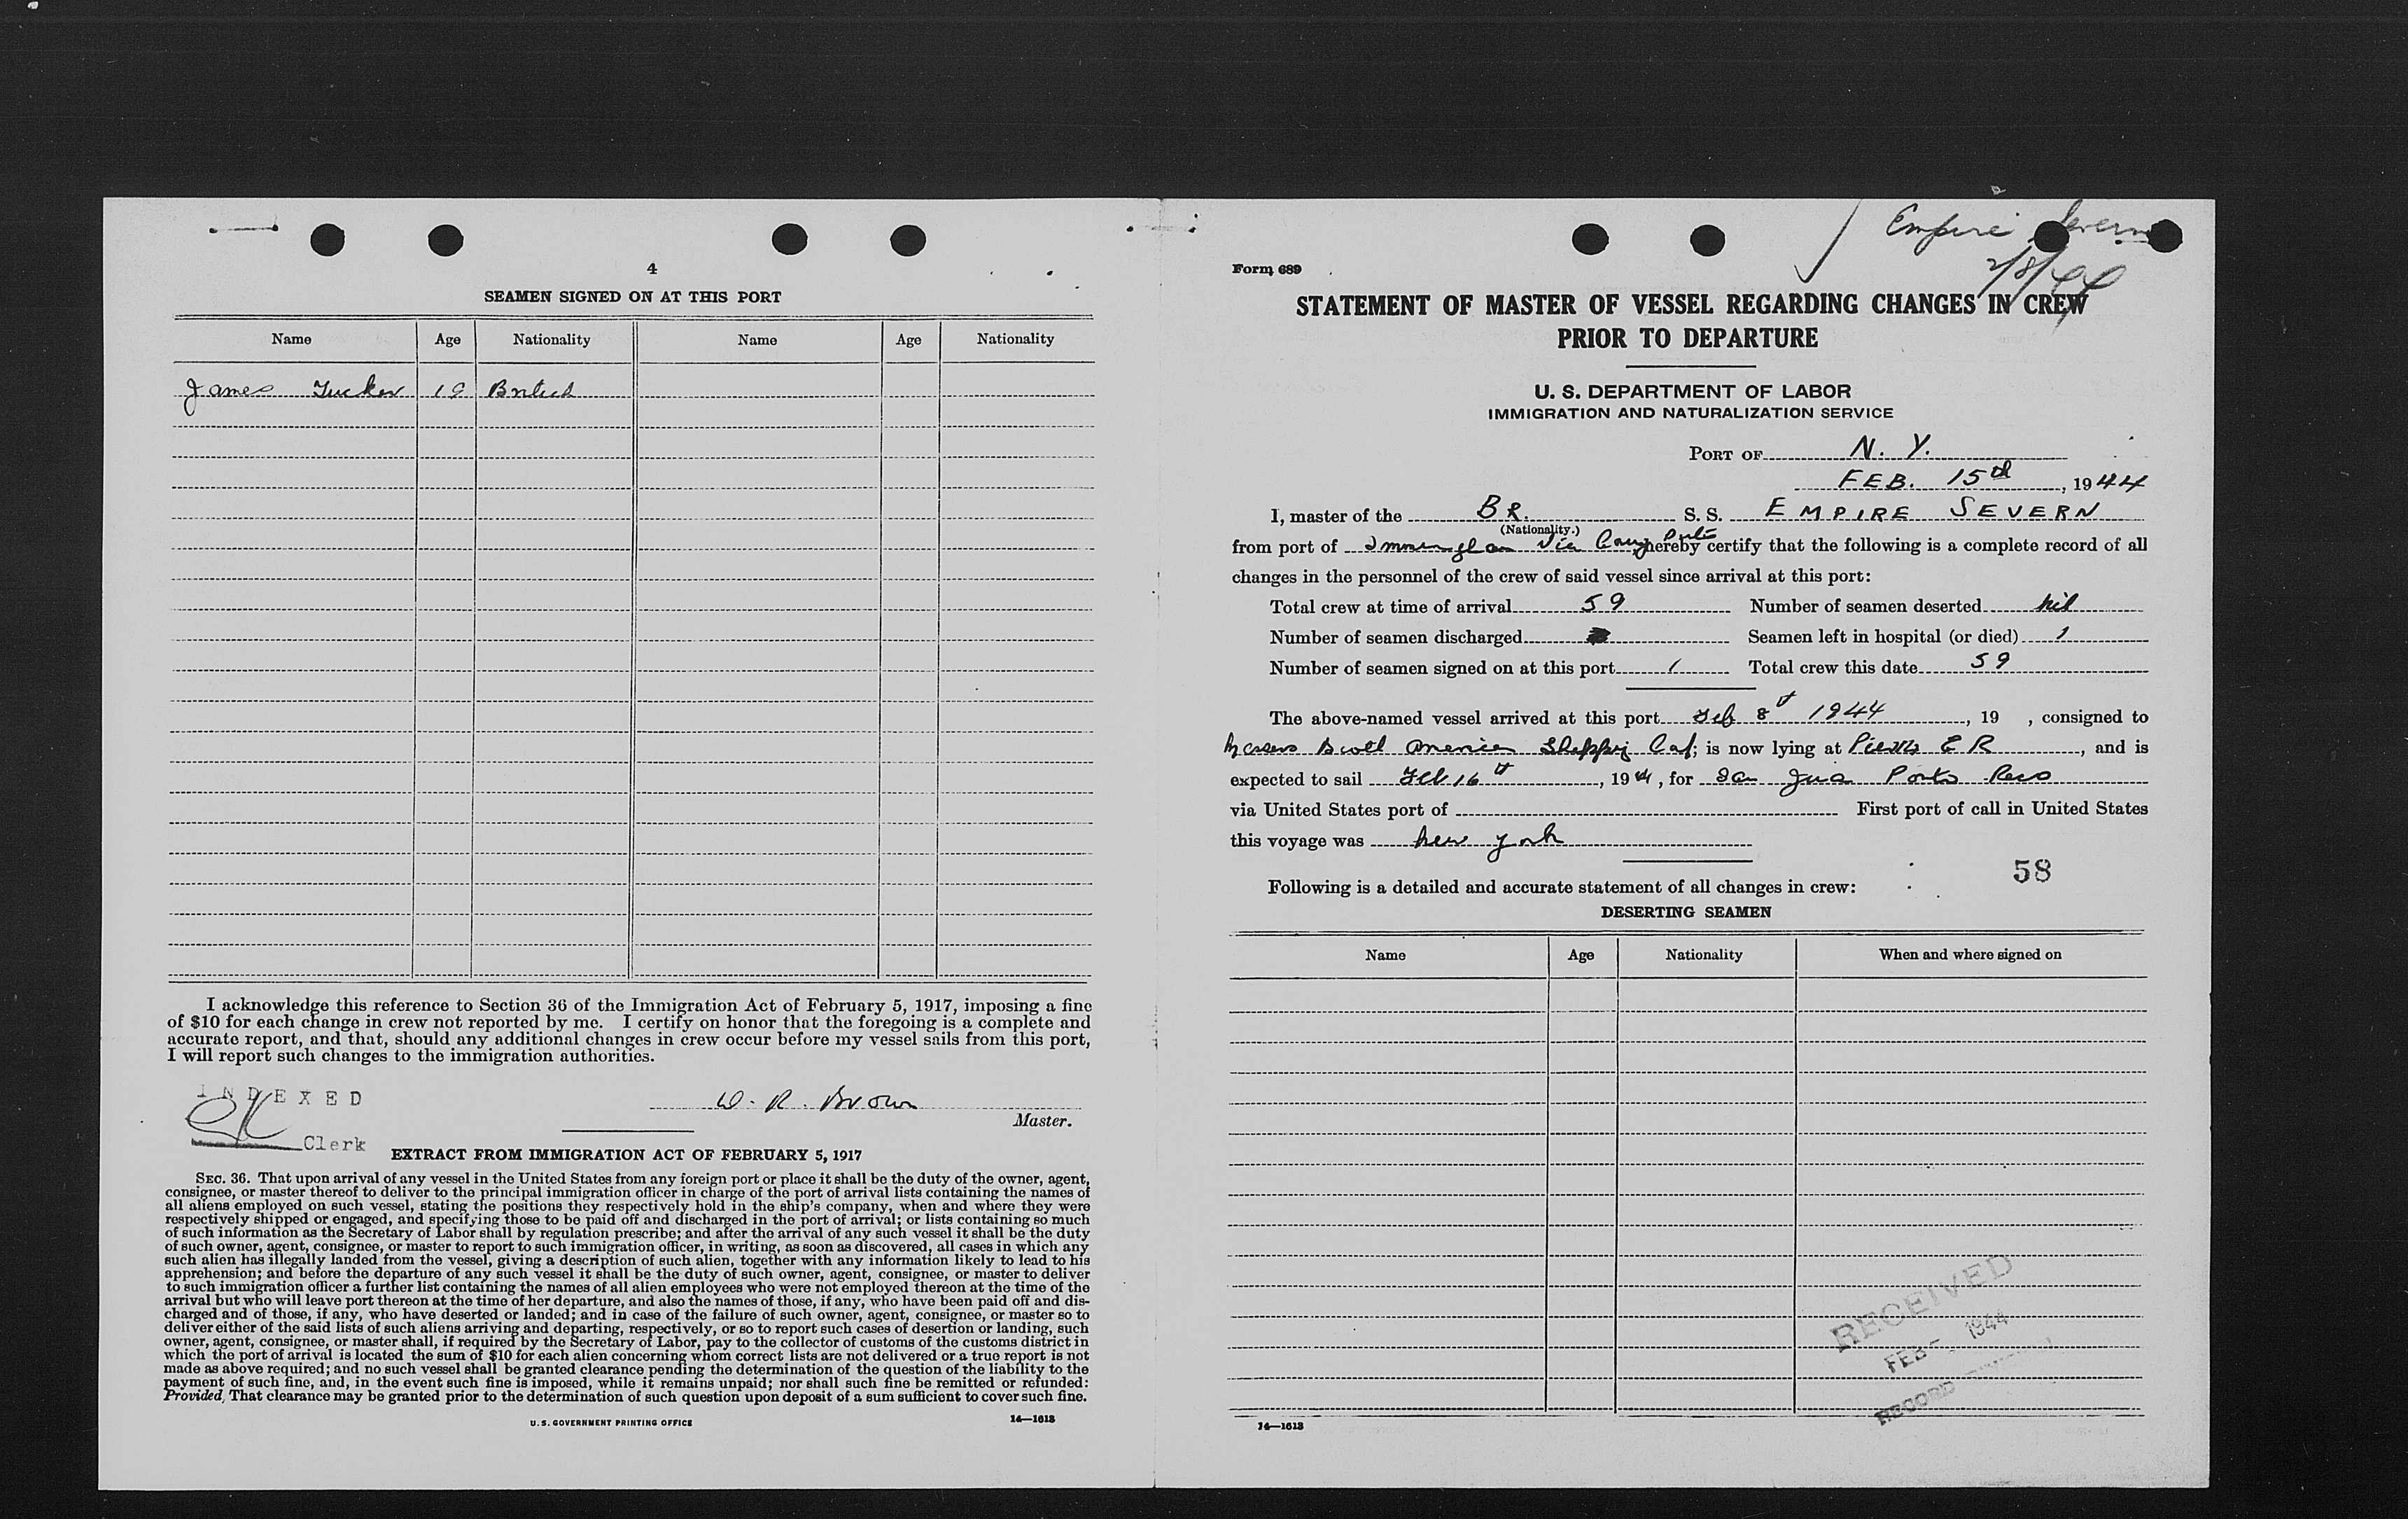 4
SEAMEN SIGNED ON AT THIS PORT
Name Age Nationality Name Age Nationality
James Tucker 19 British
I acknowledge this reference to Section 36 of the Immigration Act of February 5, 1917, imposing a fine
of $10 for each change in crew not reported by me. I certify on honor that the foregoing is a complete and
accurate report, and that, should any additional changes in crew occur before my vessel sails from this port,
I will report such changes to the immigration authorities.
INDEXED
W. R. Brown
Master.
Clerk
EXTRACT FROM IMMIGRATION ACT OF FEBRUARY 5, 1917
SEC. 36. That upon arrival of any vessel in the United States from any foreign port or place it shall be the duty of the owner, agent,
consignee, or master thereof to deliver to the principal immigration officer in charge of the port of arrival lists containing the names of
all aliens employed on such vessel, stating the positions they respectively hold in the ship's company, when and where they were
respectively shipped or engaged, and specifying those to be paid off and discharged in the port of arrival; or lists containing so much
of such information as the Secretary of Labor shall by regulation prescribe; and after the arrival of any such vessel it shall be the duty
of such owner, agent, consignee, or master to report to such immigration officer, in writing, as soon as discovered, all cases in which any
such alien has illegally landed from the vessel, giving a description of such alien, together with any information likely to lead to his
apprehension; and before the departure of any such vessel it shall be the duty of such owner, agent, consignee, or master to deliver
to such immigration officer a further list containing the names of all alien employees who were not employed thereon at the time of the
arrival but who will leave port thereon at the time of her departure, and also the names of those, if any, who have been paid off and dis-
charged and of those, if any, who have deserted or landed; and in case of the failure of such owner, agent, consignee, or master so to
deliver either of the said lists of such aliens arriving and departing, respectively, or so to report such cases of desertion or landing, such
owner, agent, consignee, or master shall, if required by the Secretary of Labor, pay to the collector of customs of the customs district in
which the port of arrival is located the sum of $10 for each alien concerning whom correct lists are not delivered or a true report is not
made as above required; and no such vessel shall be granted clearance pending the determination of the question of the liability to the
payment of such fine, and, in the event such fine is imposed, while it remains unpaid; nor shall such fine be remitted or refunded:
Provided, That clearance may be granted prior to the determination of such question upon deposit of a sum sufficient to cover such fine.
U. S. GOVERNMENT PRINTING OFFICE 14—1613
Empire Severn
2/8/44
Form 689
STATEMENT OF MASTER OF VESSEL REGARDING CHANGES IN CREW
PRIOR TO DEPARTURE
U. S. DEPARTMENT OF LABOR
IMMIGRATION AND NATURALIZATION SERVICE
PORT OF N. Y.
FEB. 15th, 1944
I, master of the BR. S. S. EMPIRE SEVERN
(Nationality.)
from port of via Ports hereby certify that the following is a complete record of all
changes in the personnel of the crew of said vessel since arrival at this port:
Total crew at time of arrival 59 Number of seamen deserted nil
Number of seamen discharged Seamen left in hospital (or died) 1
Number of seamen signed on at this port 1 Total crew this date 59
The above-named vessel arrived at this port Feb 8th 1944, 19 , consigned to
Messrs American Shipping; is now lying at E R, and is
expected to sail Feb 16th, 1944, for San Juan Porto Rico
via United States port of First port of call in United States
this voyage was New York
58
Following is a detailed and accurate statement of all changes in crew:
DESERTING SEAMEN
Name Age Nationality When and where signed on
RECEIVED
FEB 1944
RECORD
14—1613